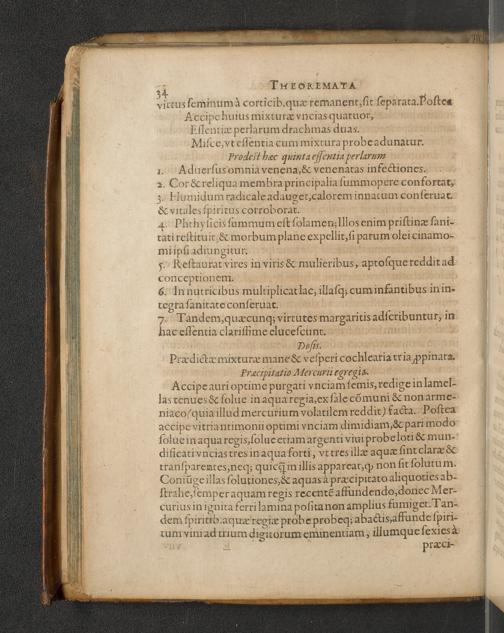 34
THEOREMATA
virtus seminum à corticib. quæ remanent, sit separata. Postea
Accipe huius mixturæ vncias quatuor,
Essentiæ perlarum drachmas duas.
Misce, vt essentia cum mixtura probe adunatur.
Prodest hæc quinta essentia perlarum
1. Aduersus omnia venena, & venenatas infectiones.
2. Cor & reliqua membra principalia summopere confortat.
3. Humidum radicale adauget, calorem innatum conseruat
& vitales spiritus corroborat.
4. Phthysicis summum est solamen; Illos enim pristinæ sani-
tati restituit, & morbum plane expellit, si parum olei cinamo-
mi ipsi adiungitur.
5. Restaurat vires in viris & mulieribus, aptosque reddit ad
conceptionem.
6. In nutricibus multiplicat lac, illasq; cum infantibus in in-
tegra sanitate conseruat.
7. Tandem, quæcunq; virtutes margaritis adscribuntur, in
hac essentia clarissime elucescunt.
Dosis.
Prædictæ mixturæ mane & vesperi cochlearia tria ꝓpinata.
Præcipitatio Mercurii egregia.
Accipe auri optime purgati vnciam semis, redige in lamel-
las tenues & solue in aqua regia, ex sale cõmuni & non arme-
niaco (quia illud mercurium volatilem reddit) facta. Postea
accipe vitri antimonii optimi vnciam dimidiam, & pari modo
solue in aqua regis, solue etiam argenti viui probe loti & mun-
dificati vncias tres in aqua forti, vt tres illæ aquæ sint claræ &
transparentes, neq; quicq̃ in illis appareat, ꝙ non sit solutum.
Coniũge illas solutiones, & aquas à præcipitato aliquoties ab-
strahe, semper aquam regis recentẽ affundendo, donec Mer-
curius in ignita ferri lamina posita non amplius fumiget. Tan-
dem spiritib. aquæ regiæ probe probeq; abactis, affunde spiri-
tum vini ad trium digitorum eminentiam, illumque sexies à
præci-